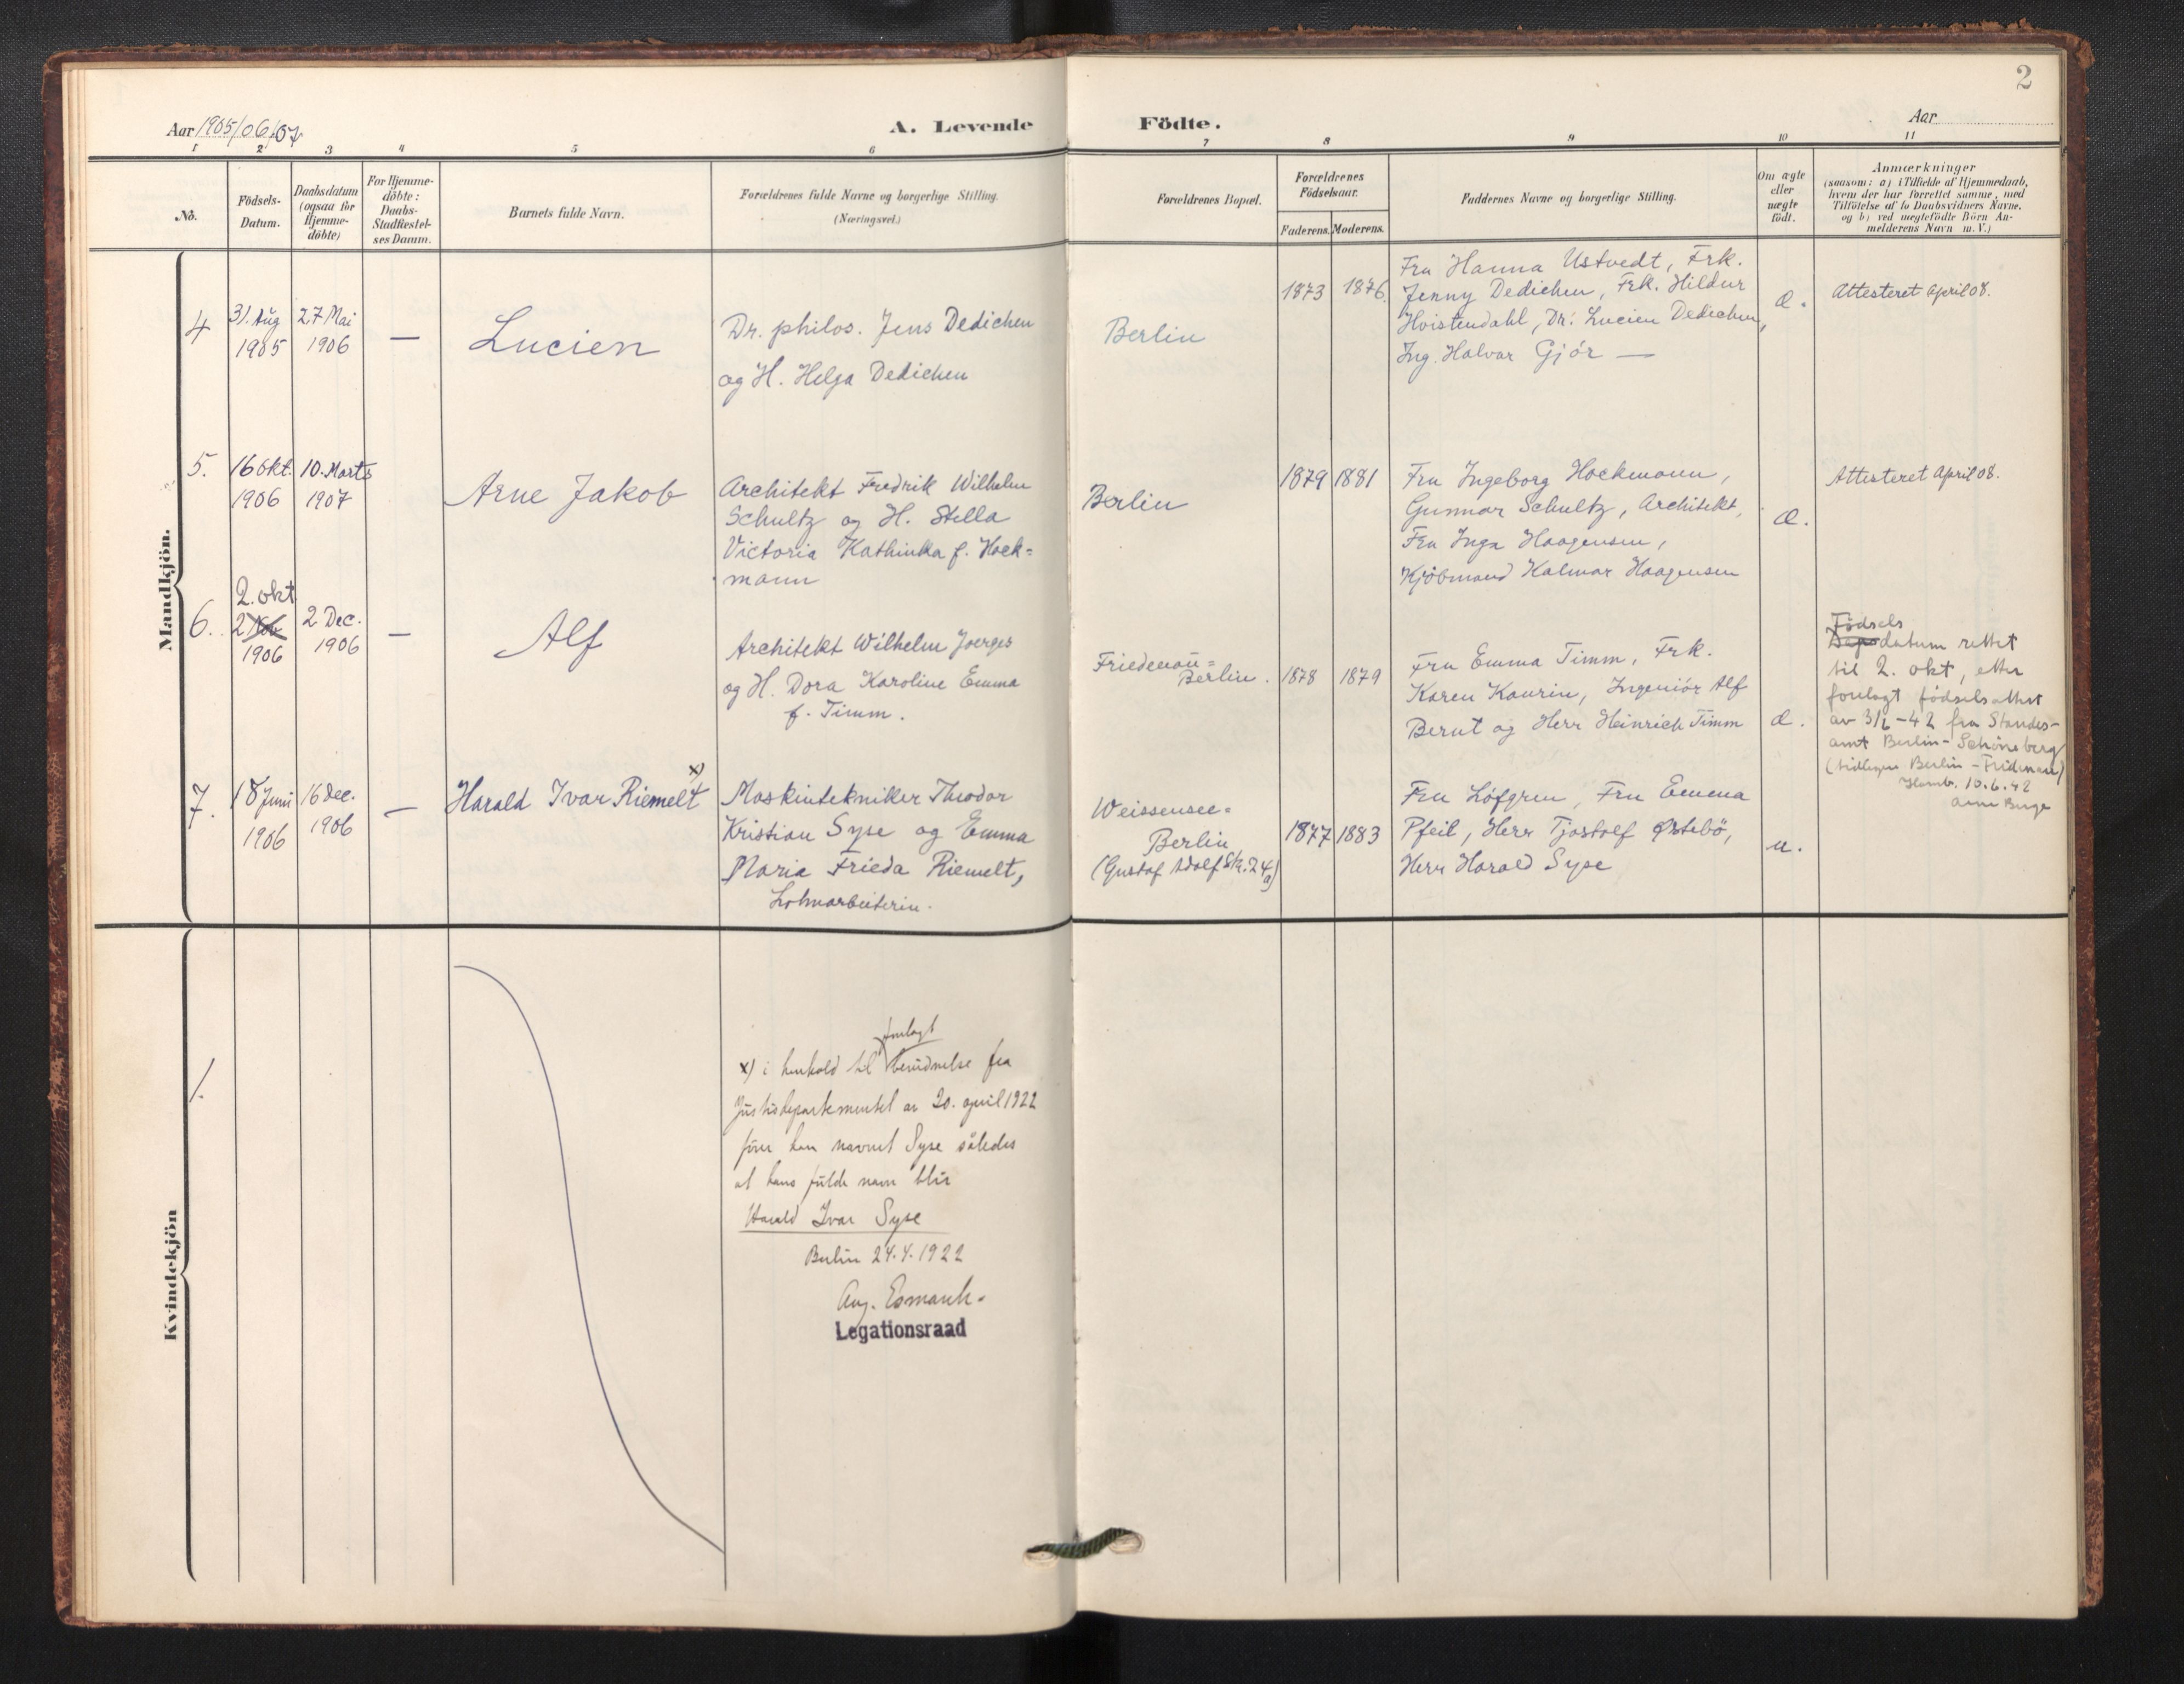 2
Aar 1905/06/07
A. Levende
Födte.
Aar
1
2
3
4
5
6
7
8
9
10
11
No.
Födsels-
Datum.
Daabsdatum
(ogsaa for
Hjemme-
döbte)
For Hjemme-
döbte:
Daabs-
Stadfæstel-
ses Datum.
Barnets fulde Navn.
Forældrenes fulde Navne og borgerlige Stilling.
(Næringsvei.)
Forældrenes Bopæl.
Forældrenes
Födselsaar.
Faderens.
Moderens.
Faddernes Navne og borgerlige Stilling.
Om ægte
eller
uægte
födt.
Anmærkninger
(saasom: a) i Tilfælde af Hjemmedaab,
hvem der har forrettet samme, med
Tilföielse af to Daabsvidners Navne.
og b) ved uægtefödte Börn An-
melderens Navn m. V.)
Mandkjön.
4
31. Aug
1905
27 Mai
1906
—
Lucien
Dr. philos. Jens Dedichen
og H. Helga Dedichen
Berlin
1873
1876.
Fru Hanna Ustvedt, Frk.
Jenny Dedichen, Frk. Hildur
Hoistendahl, Dr. Lucien Dedichen,
Ing. Halvar Gjör —
æ.
Attesteret April 08.
5.
16 Okt.
1906
10. Marts
1907
Arne Jakob
Architekt Fredrik Wilhelm
Schultz og H. Stella
Victoria Kathinka f. Hock=
mann
Berlin
1879
1881
Fru Ingeborg Hockmann,
Gunnar Schultz, Architekt,
Fru Inga Haagensen,
Kjöbmand Kalmar Haagensen
æ.
Attesteret April 08.
6.
2. okt
2 Nov
1906
2 Dec.
1906
—
Alf
Architekt Wilhelm Joerges
og H. Dora Karoline Emma
f. Timm.
Friedenau=
Berlin.
1878
1879
Fru Emma Timm, Frk.
Karen Kaurin, Ingeniör Alf
Bernt og Herr Heinrich Timm
æ.
Födsels
datum rettet
til 2. okt, etter
forelagt födselsattest
av 3/2-42 fra Standes-
amt Berlin-Schöneberg
(tidligere Berlin-Fridenau)
Hamb. 10.6.42
7.
18 Juni
1906
16 dec.
1906
—
Harald Ivar Riemelt x)
Maskintekniker Theodor
Kristian Syse og Emma
Maria Frieda Riemelt,
Lohnarbeiterin.
Weissensee=
Berlin
(Gustaf Adolf Str. 24a)
1877
1883
Fru Löfgren, Fru Emma
Pfeil, Herr Tjostolf Østebö,
Herr Harald Syse
u.
Kvindekjön
1.
forelagt
x) i henhold til bevidnelse fra
Justisdepartementet av 20. april 1922
förer han navnet Syse således
at hans fulde navn blir
Harald Ivar Syse
Berlin 24.4.1922
Aug. Esmarch.
Legationsraad